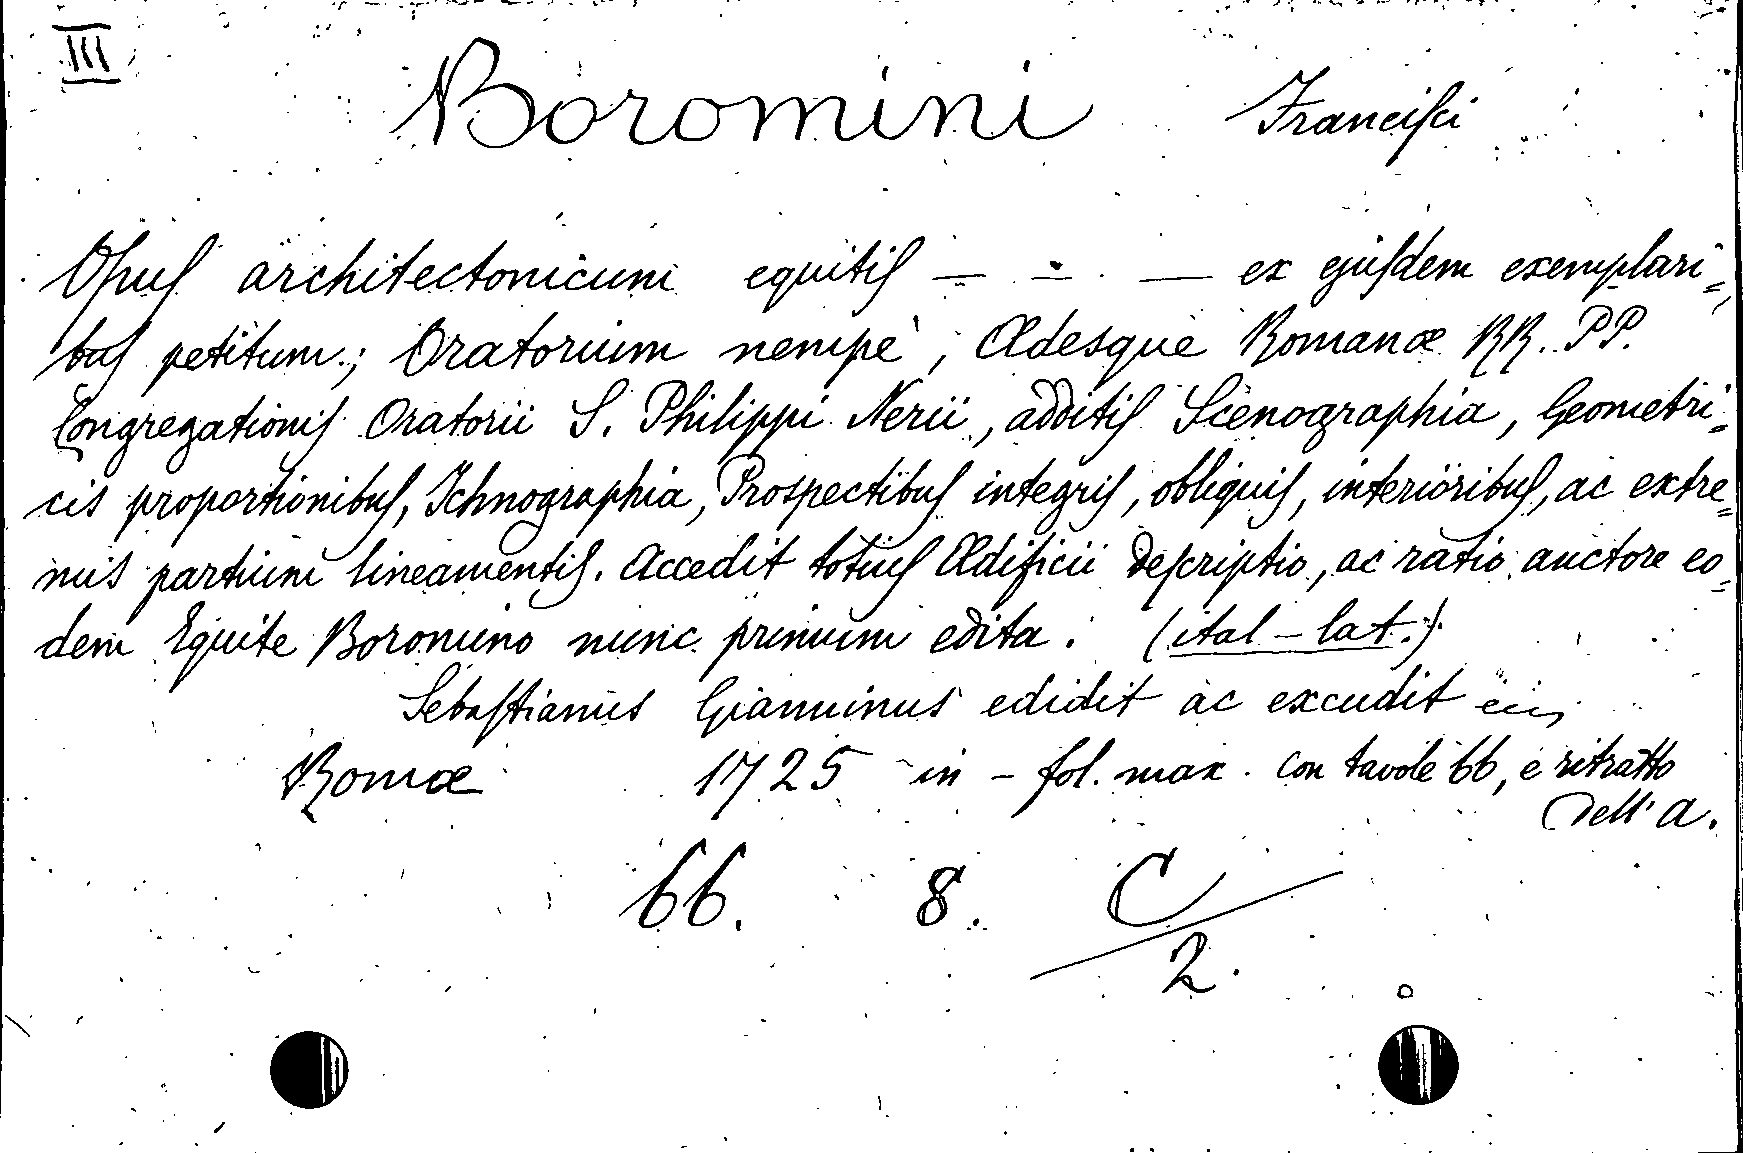 III
Boromini Franciſci
Opuſ architectonicum equitiſ — - — ex ejuſdem exemplari=
buſ petitum; Oratorium nempè, Ædesque Romanæ RR. PP.
Congregationiſ Oratorii S. Philippi Nerii, additiſ Scenographia, Geometri=
cis proportionibuſ, Ichnographia, Prospectibuſ integriſ, obliquiſ, interioribuſ, ac extre=
mis partium lineamentiſ. Accedit totiuſ Ædificii deſcriptio, ac ratio auctore eo=
dem Equite Boromino nunc primum edita. (ital-lat.)
Sebaſtianus Gianninus edidit ac excudit
Romæ 1725 in-fol. max. con tavole 66, e ritratto
dell' A.
66. 8. C/2.